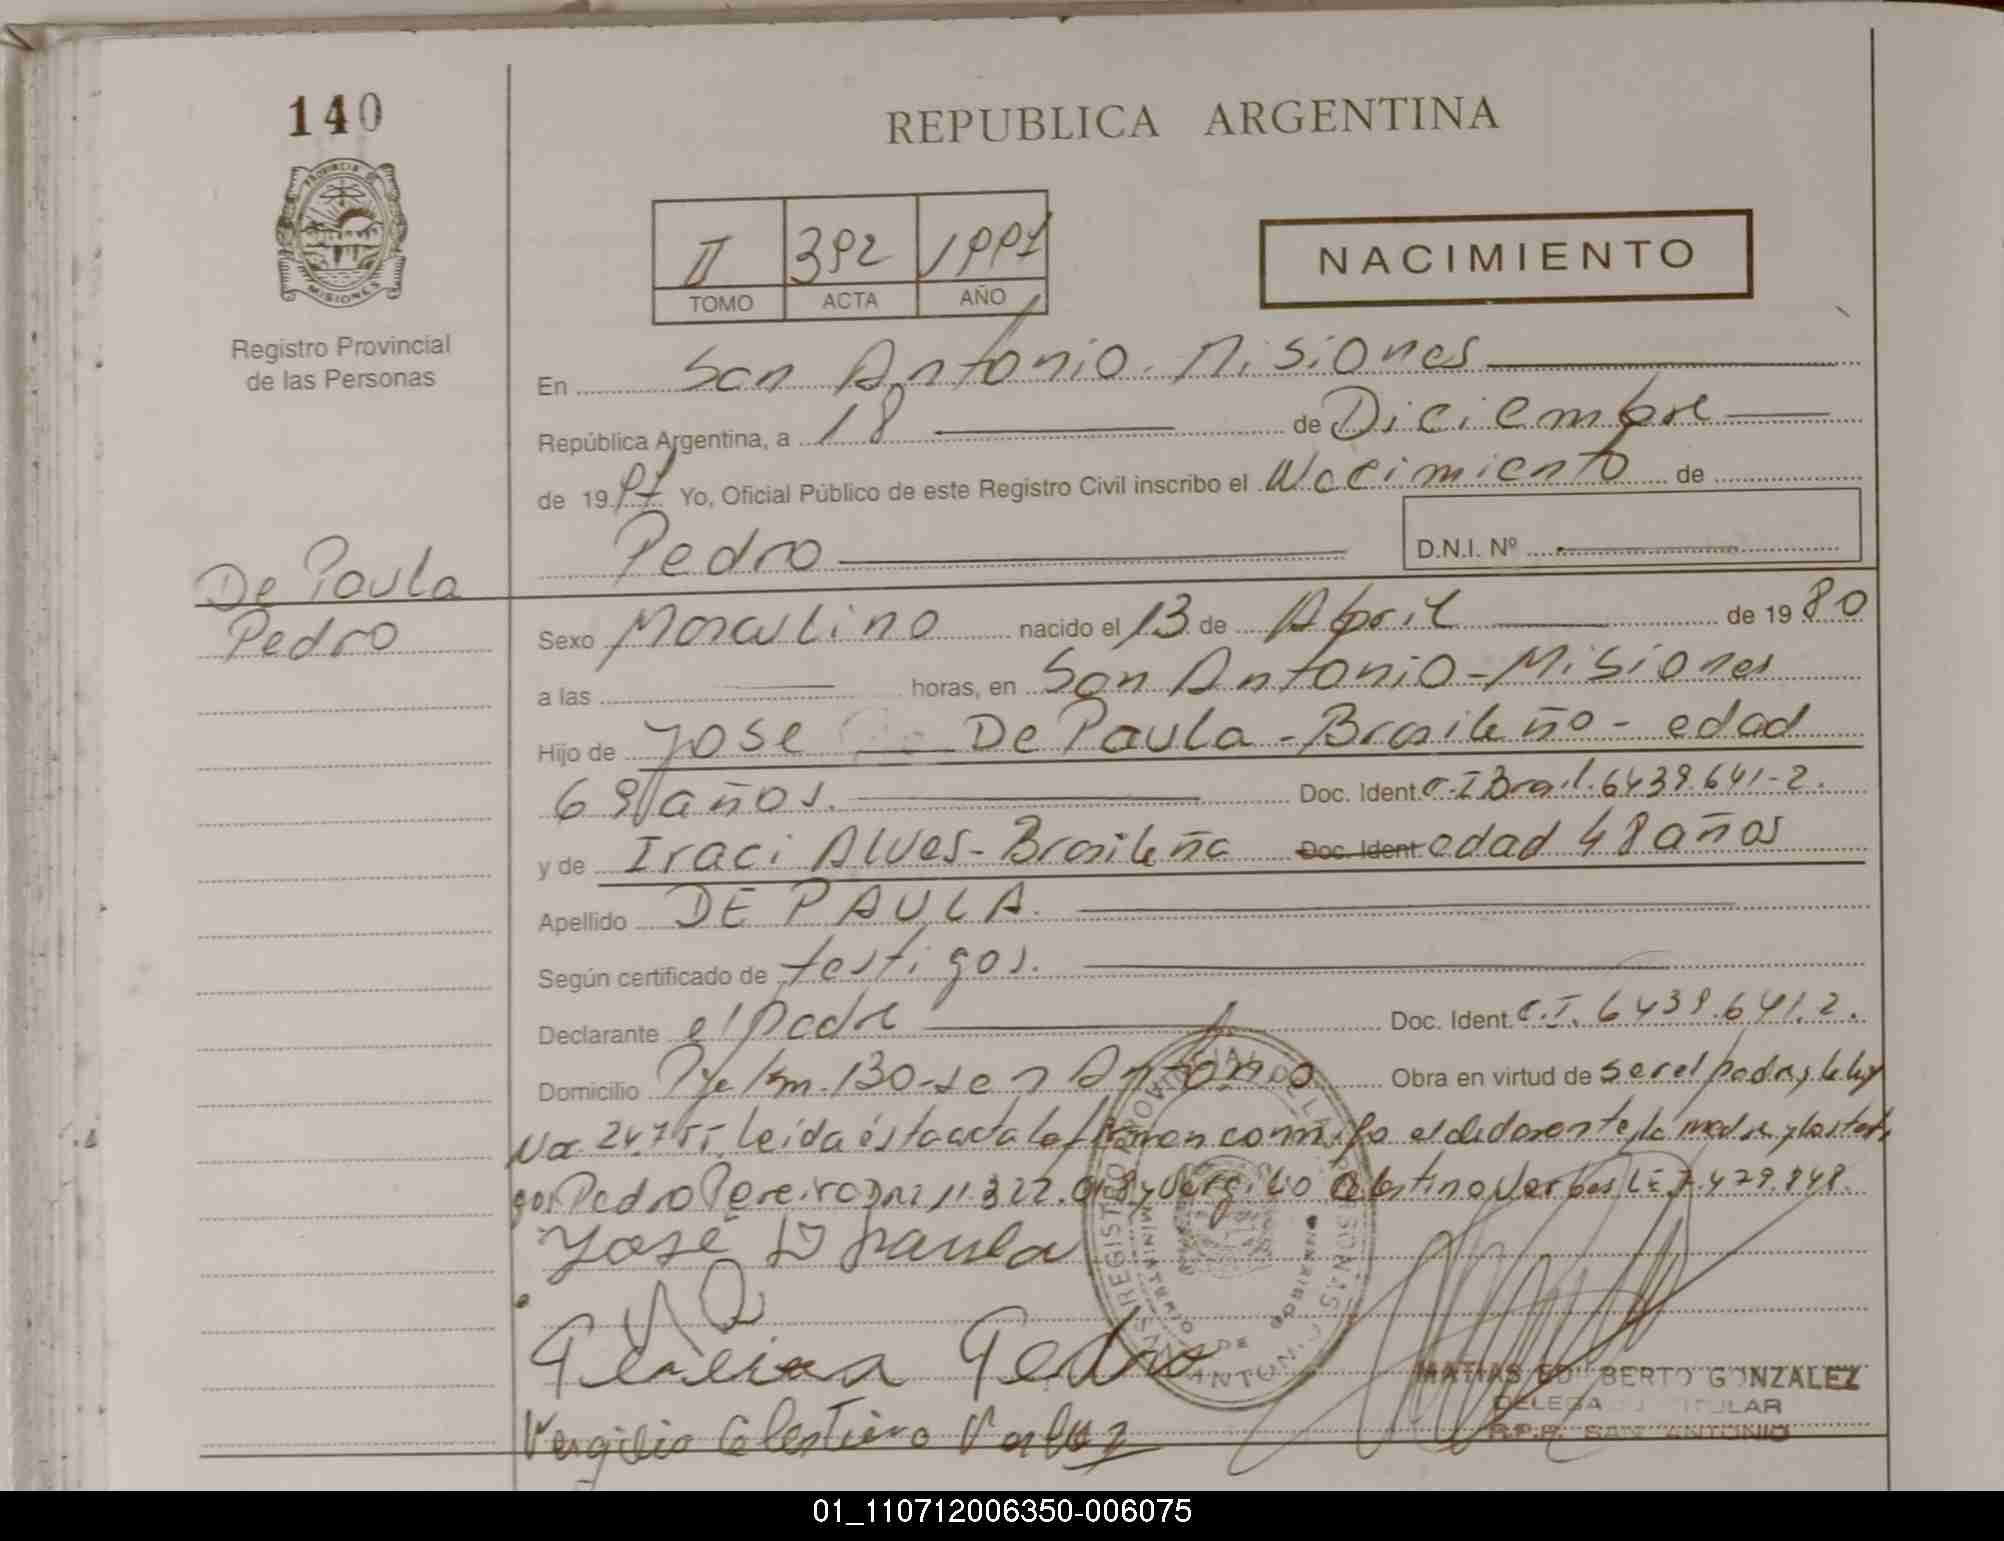 140
REPUBLICA ARGENTINA
PROVINCIA DE MISIONES
Registro Provincial
de las Personas
II 392 1991
TOMO ACTA AÑO
NACIMIENTO
En San Antonio - Misiones
República Argentina, a 18 de Diciembre
de 1991 Yo, Oficial Público de este Registro Civil inscribo el Nacimiento de
Pedro D.N.I. Nº
De Paula
Pedro
Sexo Masculino nacido el 13 de Abril de 1980
a las horas, en San Antonio - Misiones
Hijo de Jose De Paula - Brasileño - edad
69 años. Doc. Ident. C.I Brasil. 6439.641-2.
y de Iraci Alves - Brasileña Doc. Ident. edad 48 años
Apellido DE PAULA.
Según certificado de testigos.
Declarante el padre Doc. Ident. C.I. 6439.641.2.
Domicilio Pje Km. 130 - San Antonio Obra en virtud de ser el padre y le ley
Nac. 24.755 leida ésta acta la firman conmigo el declarante, la madre y los testi
gos Pedro Pereira DNI 11.322.018 y Vergilio Celestino L.E 7.479.848.
José D paula
Pereira Pedro
Vergilio Celestino
REGISTRO PROVINCIAL DE LAS PERSONAS
MINISTERIO DE GOBIERNO
SAN ANTONIO
MATIAS EDILBERTO GONZALEZ
DELEGADO TITULAR
R.P.P. SAN ANTONIO
01_110712006350-006075